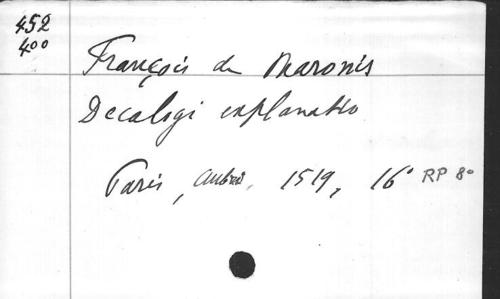 452
400
François de Maronis
Decalogi explanatio
Paris, 1519, 16° RP 8°